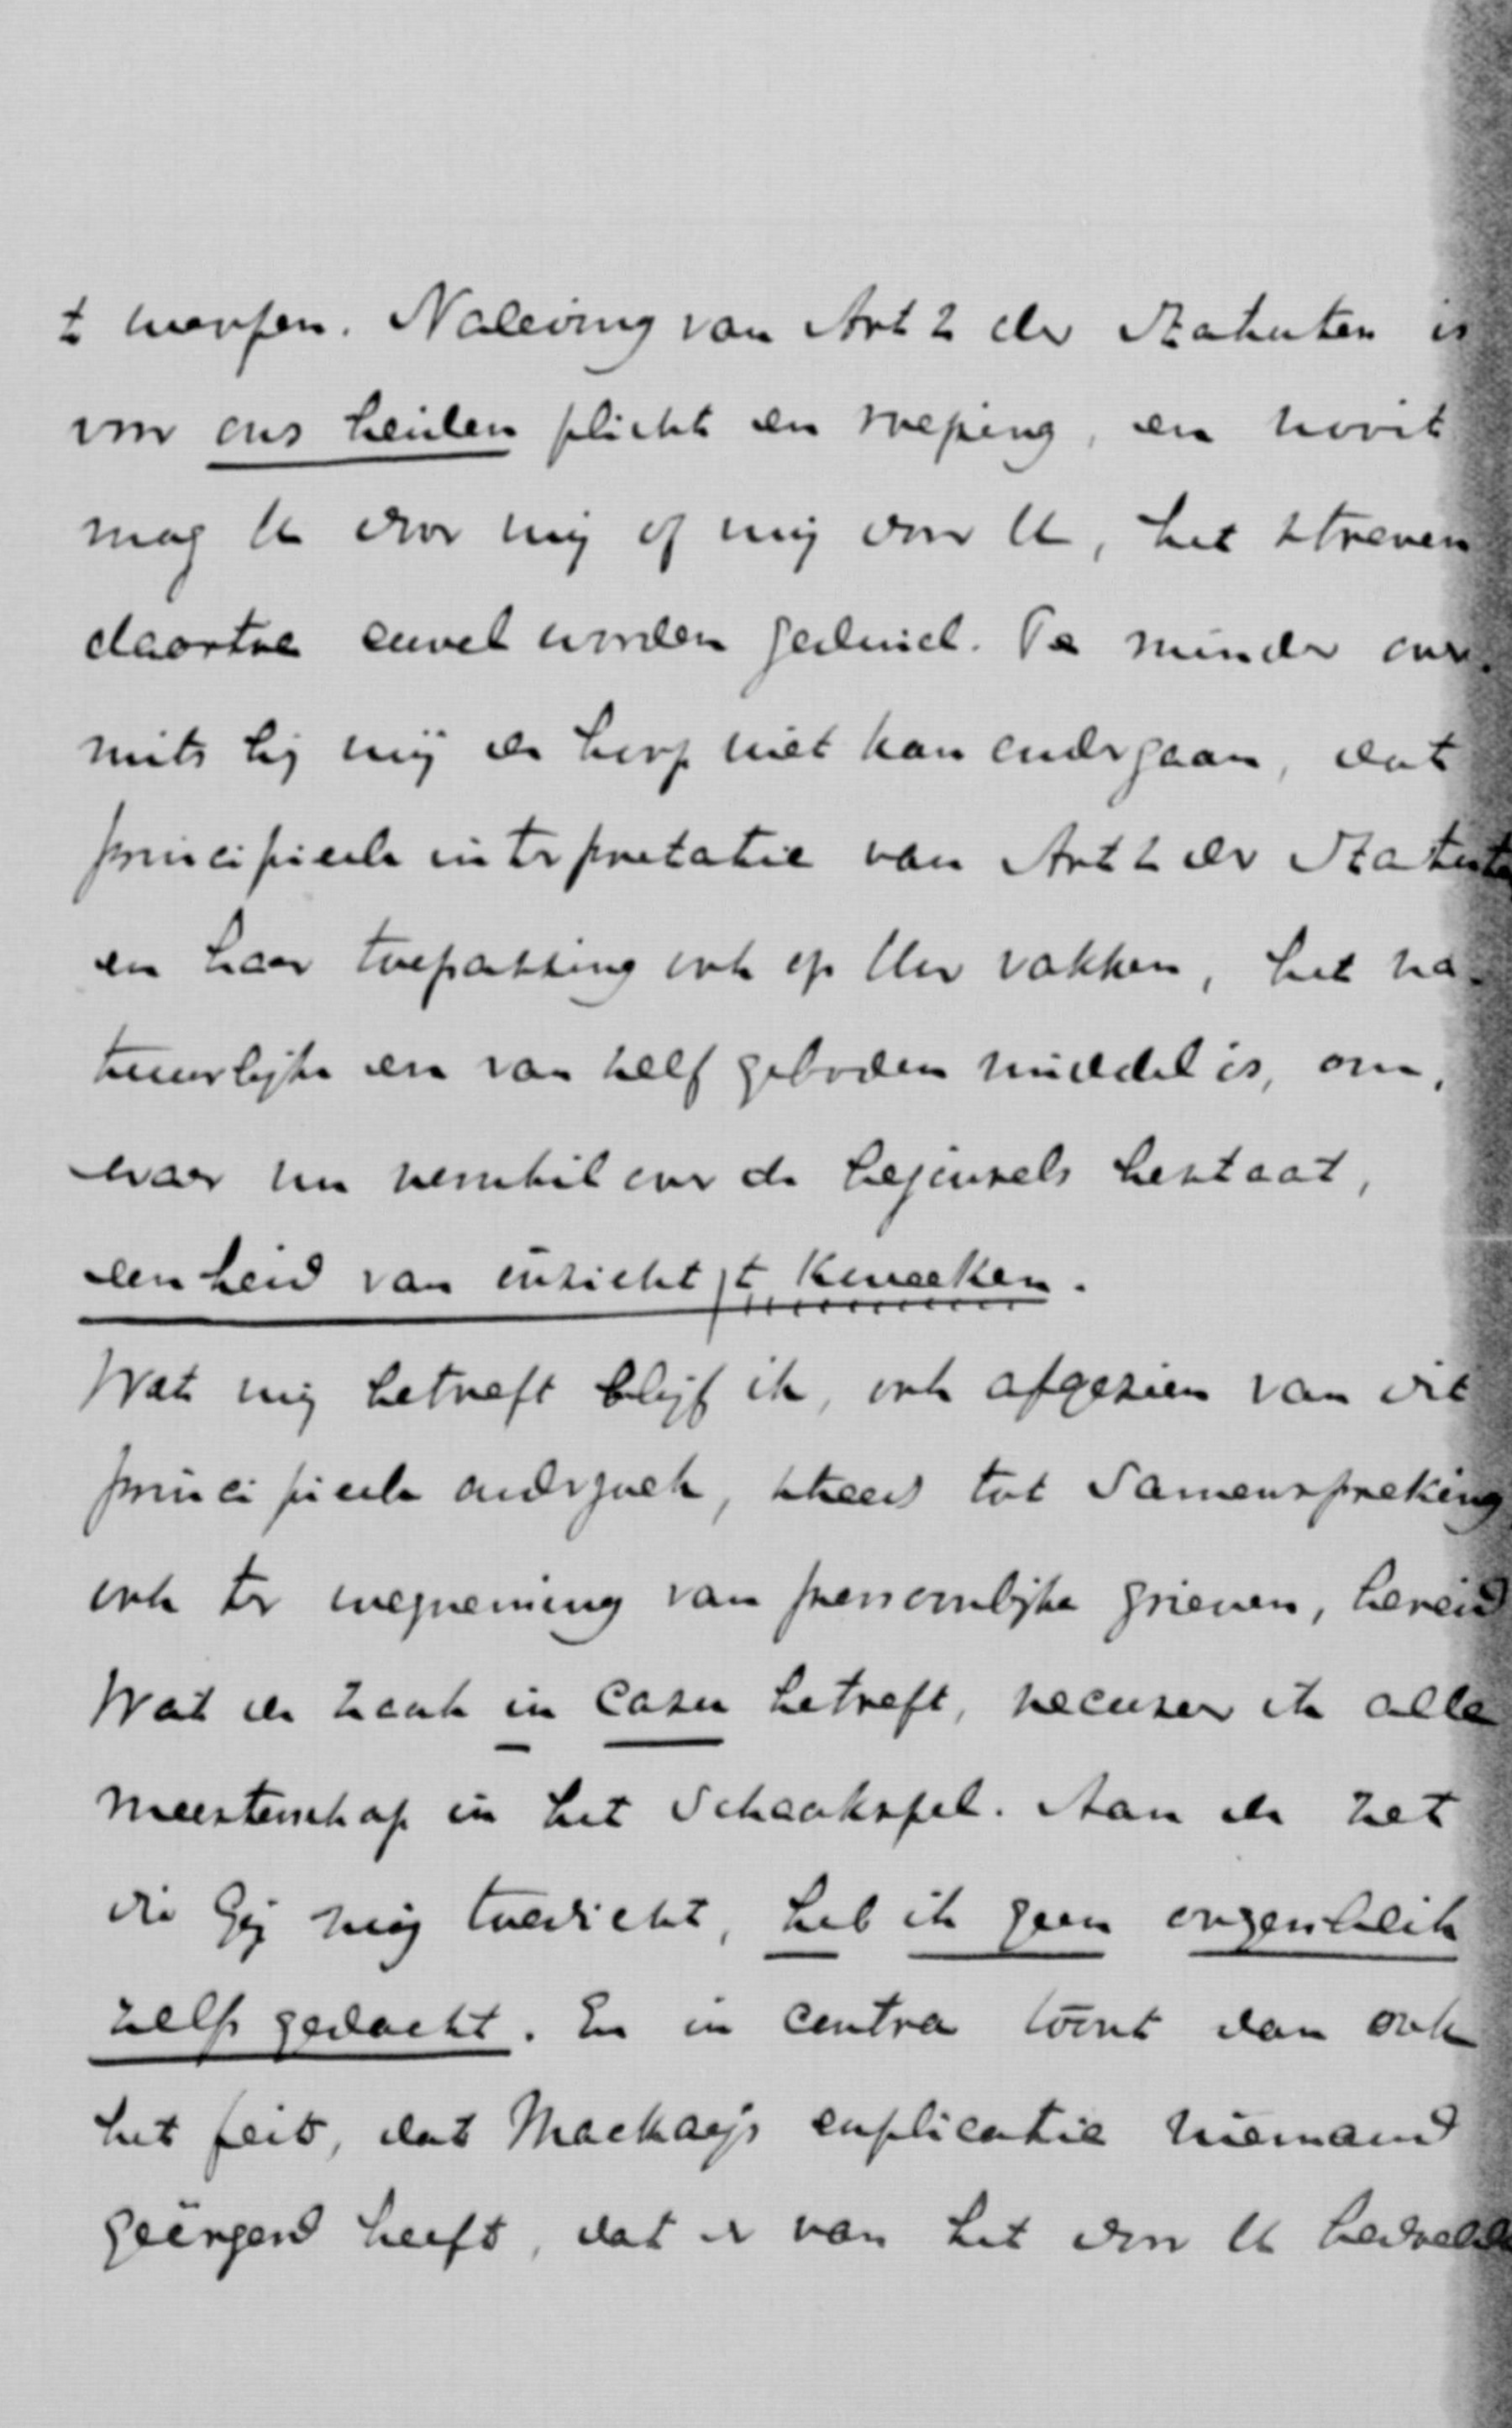 te werpen. Naleving van Art 2 der Statuten is
voor ons beiden plicht en roeping, en nooit
mag U door mij of mij door U, het streven
daartoe euvel worden geduid. Te minder over-
mits bij mij de hoop niet kan ondergaan, dat
principieele interpretatie van Art 2 der Statuten
en haar toepassing ook op Uw vakken, het na-
tuurlijke en van zelf geboden middel is, om,
waar nu verschil over de beginsels bestaat,
eenheid van inzicht te kweeken.
Wat mij betreft blijf ik, ook afgezien van dit
principieele onderzoek, steeds tot samenspreking
ook ter wegneming van persoonlijke grieven, bereid
Wat de zaak in casu betreft, recuseer ik alle
meesterschap in het schaakspel. Aan de zet
die Gij mij toedicht, heb ik geen oogenblik
zelfs gedacht. En in contra toont dan ook
het feit, dat Mackay's explicatie niemand
geërgerd heeft, dat er van het door U bedoelde